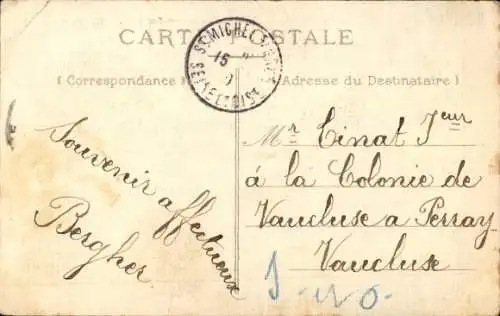 CARTE POSTALE
(Correspondance)
(Adresse du Destinataire)
ST MICHEL
15
SEINE ET OISE
Souvenir affectueux
Bergher
Mr Tinat Jeur
à la Colonie de
Vaucluse a Perray
Vaucluse